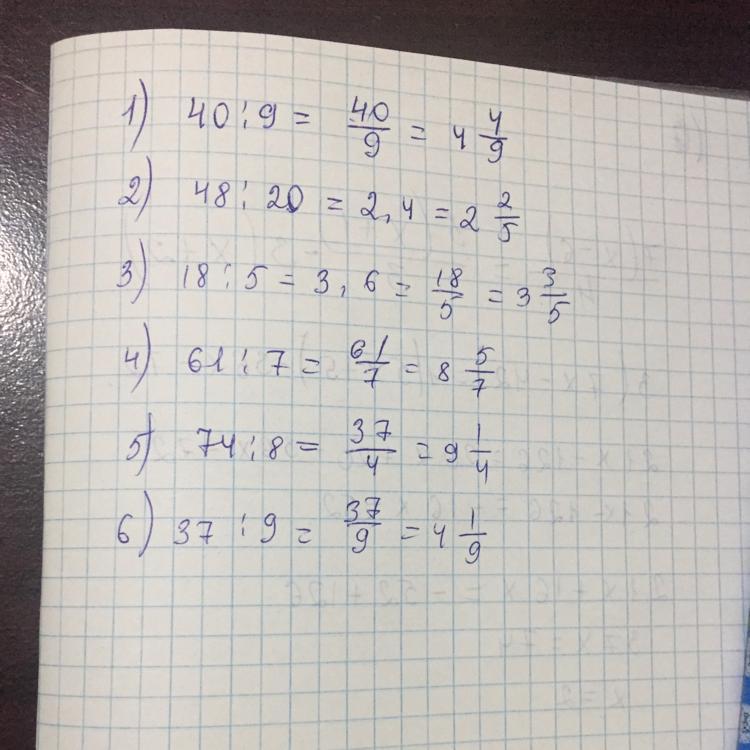 1) 40 : 9 = 40/9 = 4 4/9
2) 48 : 20 = 2,4 = 2 2/5
3) 18 : 5 = 3,6 = 18/5 = 3 3/5
4) 61 : 7 = 61/7 = 8 5/7
5) 74 : 8 = 37/4 = 9 1/4
6) 37 : 9 = 37/9 = 4 1/9